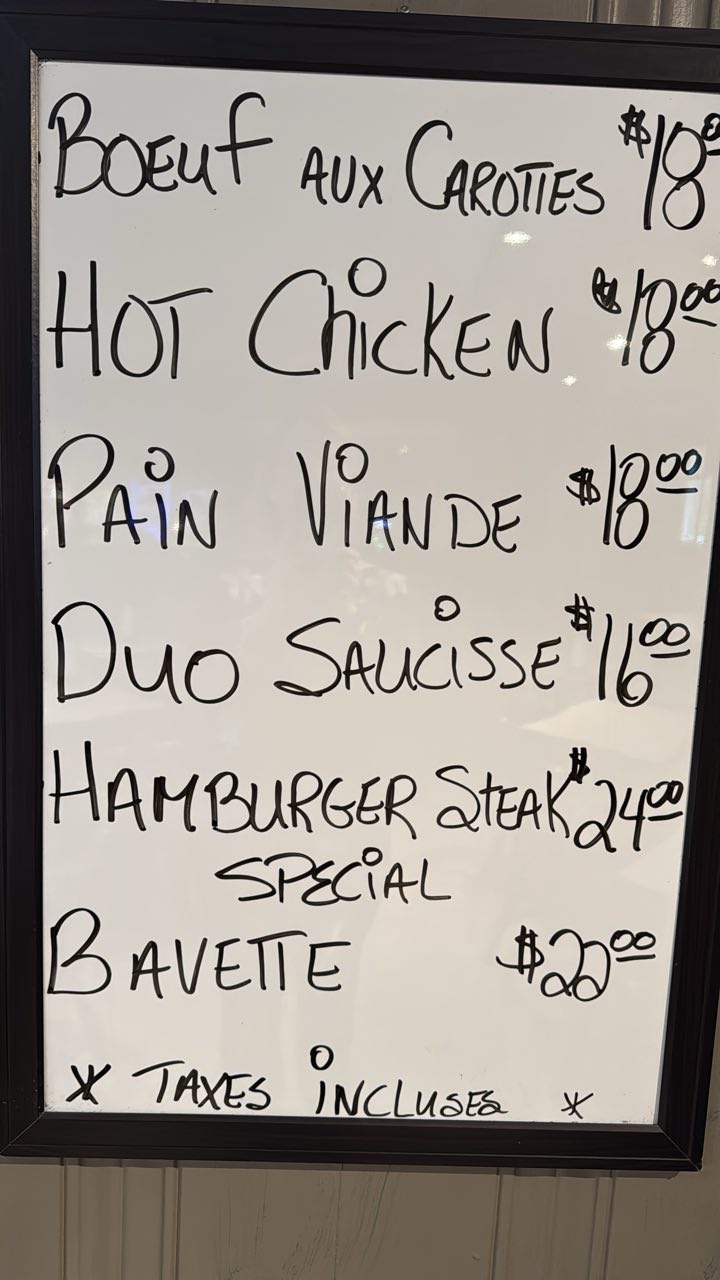 Boeuf aux Carottes $18.0
Hot Chicken $18.00
Pain Viande $18.00
Duo Saucisse $16.00
Hamburger Steak $24.00
Special
Bavette $22.00
* Taxes incluses *